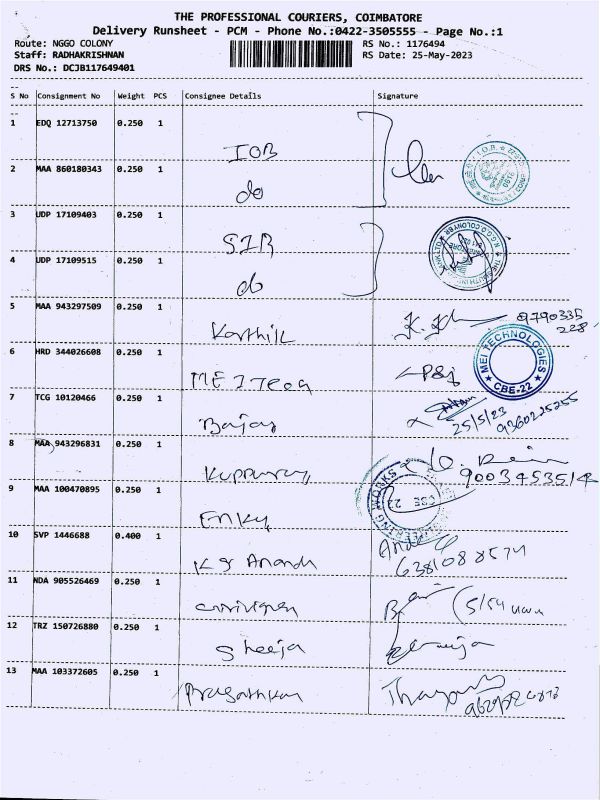 THE PROFESSIONAL COURIERS, COIMBATORE
Delivery Runsheet - PCM - Phone No.:0422-3505555 - Page No.:1
Route: NGGO COLONY RS No.: 1176494
Staff: RADHAKRISHNAN RS Date: 25-May-2023
DRS No.: DCJB117649401
S No Consignment No Weight PCS Consignee Details Signature
1 EDQ 12713750 0.250 1 IOB
2 MAA 860180343 0.250 1 do
3 UDP 17109403 0.250 1 SIB
4 UDP 17109515 0.250 1 do
5 MAA 943297509 0.250 1 Karthik 9790335
228
6 HRD 344026608 0.250 1 MEI Tech
MEI TECHNOLOGIES
CBE-22
7 TCG 10120466 0.250 1 Bajaj
25/5/23 9360225255
8 MAA 943296831 0.250 1 Kuppuraj
9003453514
9 MAA 100470895 0.250 1
CBE 22
10 SVP 1446688 0.400 1 K G Anandh
6381088574
11 NDA 905526469 0.250 1
12 TRZ 150726880 0.250 1 Sheeja
13 MAA 103372605 0.250 1